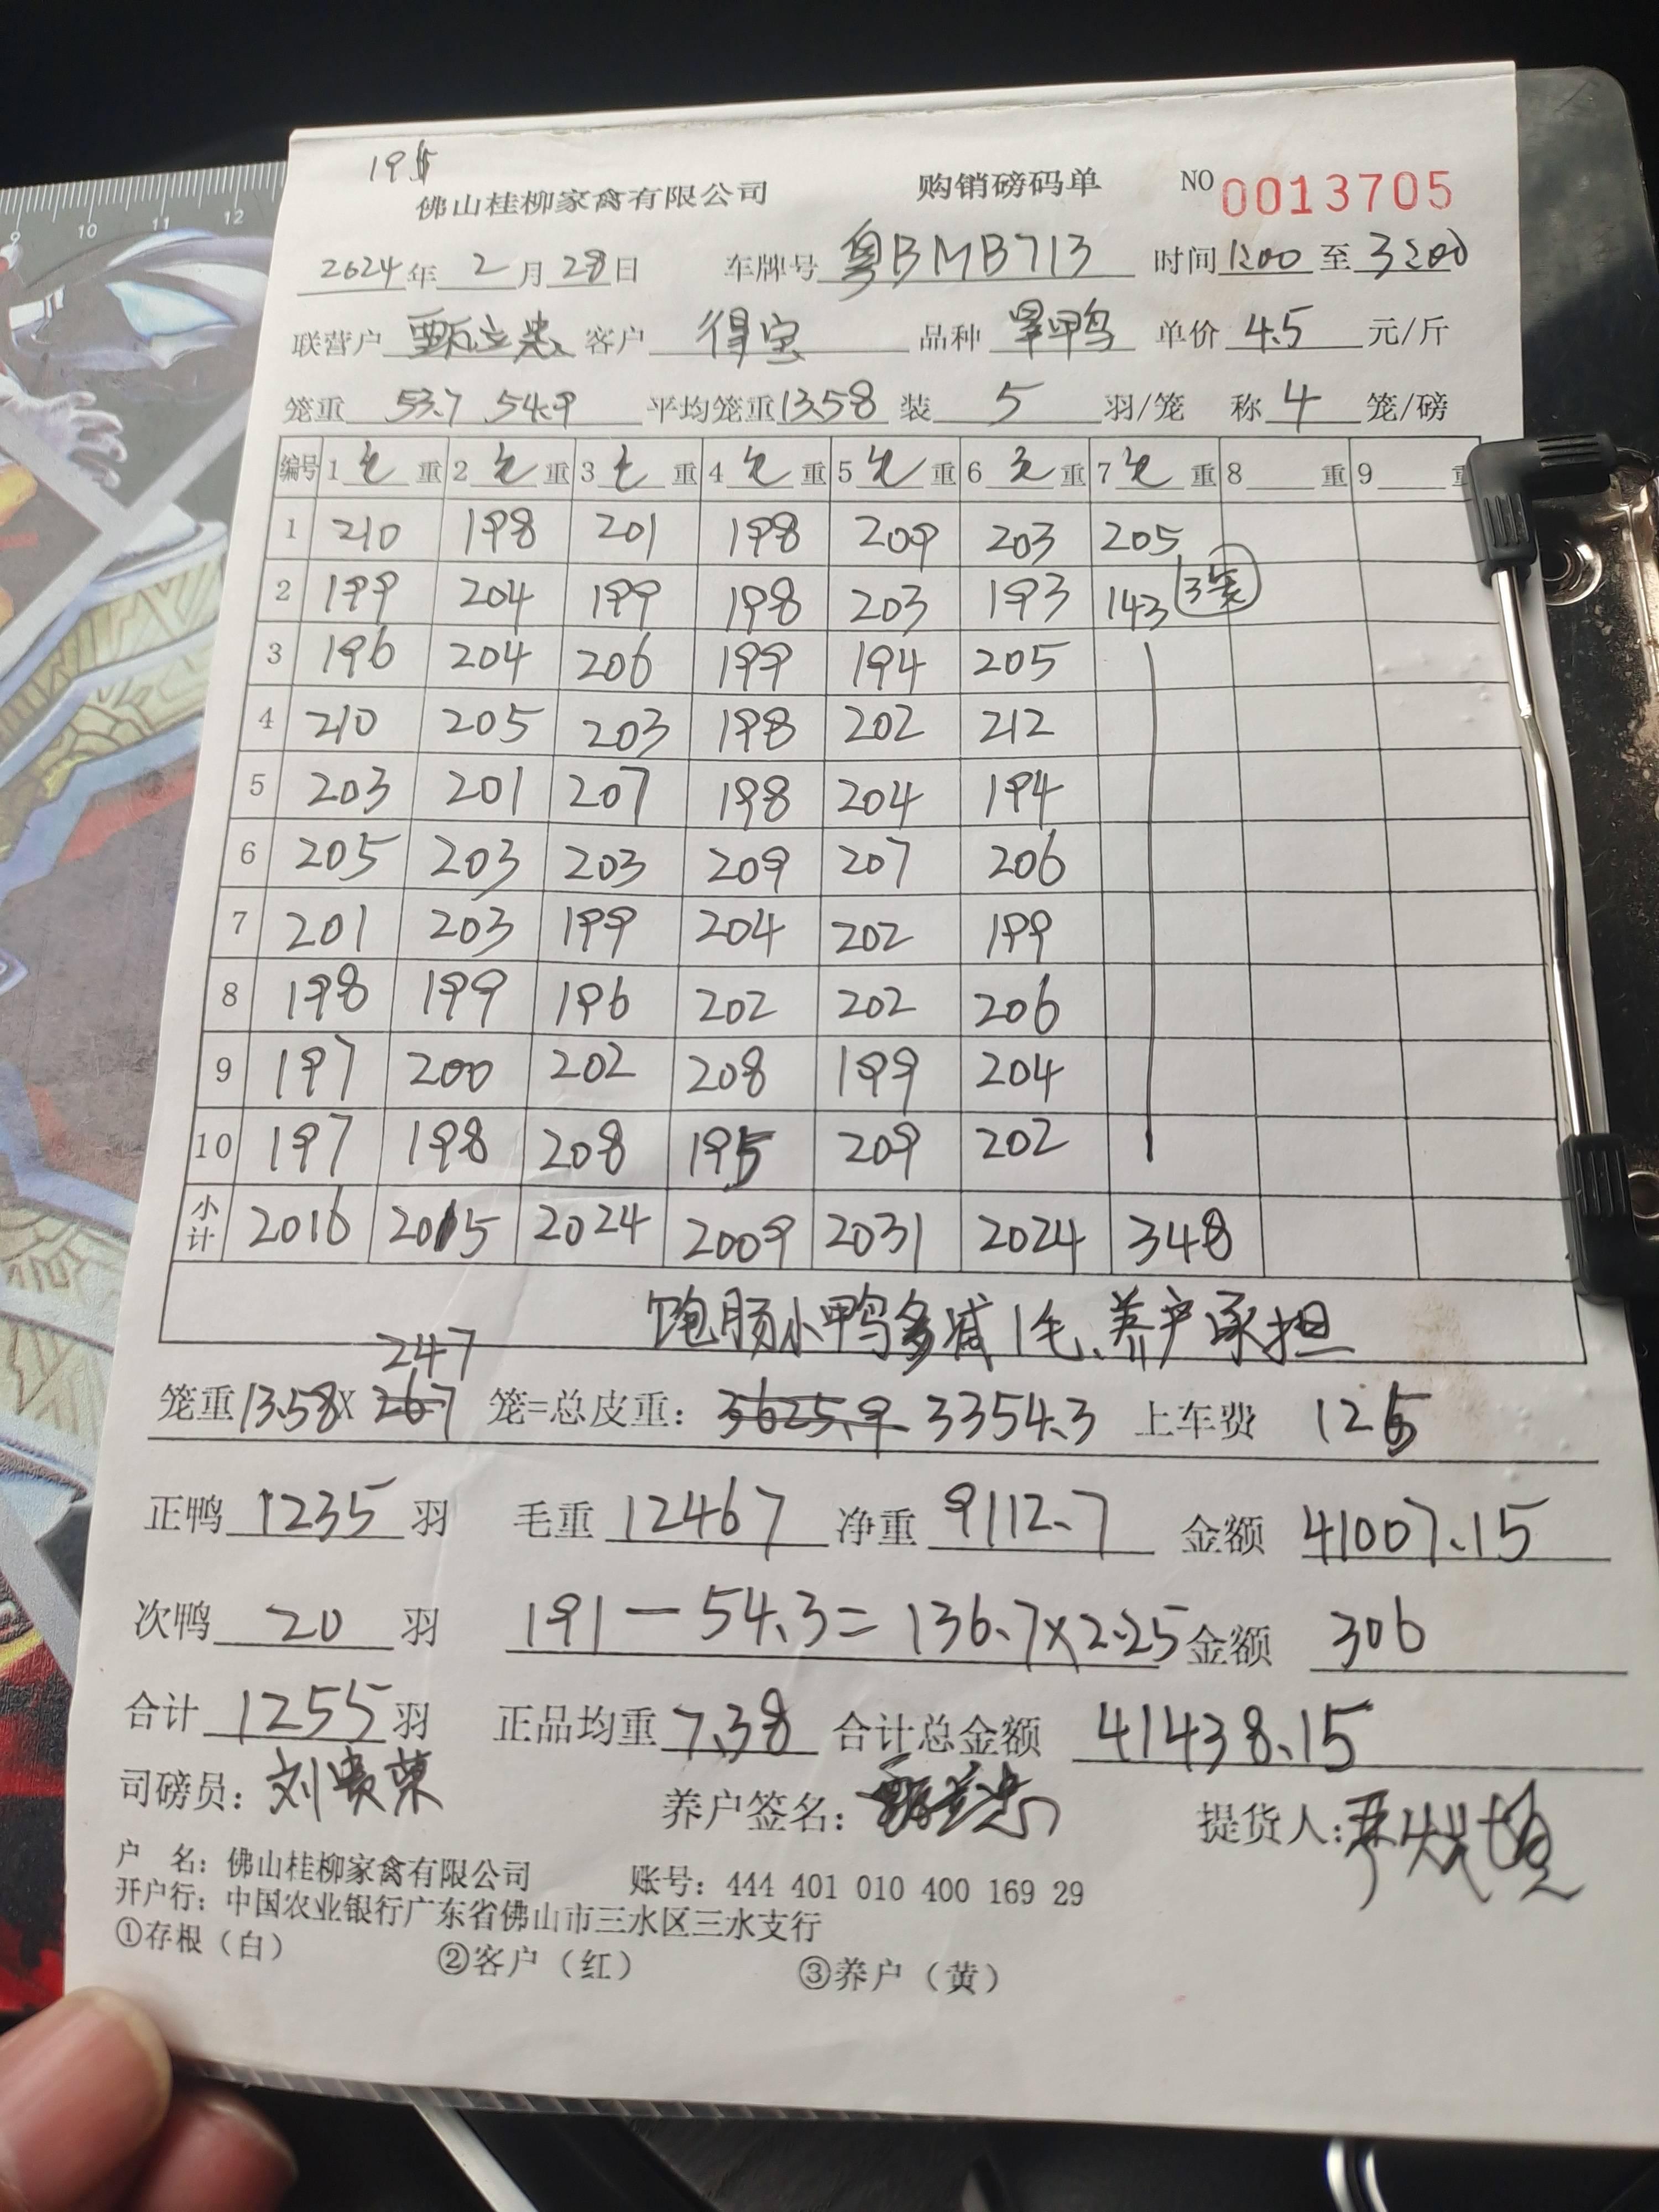 9 10 11 12
195
佛山桂柳家禽有限公司 购销磅码单 NO 0013705
2024年 2月28日 车牌号 粤BMB713 时间 1200 至 3200
联营户 甄 客户 得宝 品种 旱鸭 单价 4.5 元/斤
笼重 53.7 54.9 平均笼重 13.58 装 5 羽/笼 称 4 笼/磅
编号 1 毛 重 2 毛 重 3 毛 重 4 毛 重 5 毛 重 6 毛 重 7 毛 重 8 重 9 重
1 210 198 201 198 209 203 205
2 199 204 199 198 203 193 143 3笼
3 196 204 206 199 194 205
4 210 205 203 198 202 212
5 203 201 207 198 204 194
6 205 203 203 209 207 206
7 201 203 199 204 202 199
8 198 199 196 202 202 206
9 197 200 202 208 199 204
10 197 198 208 195 209 202
小计 2016 2015 2024 2009 2031 2024 348
饱肠小鸭多减1毛、养户承担
247
笼重 13.58 X 267 笼=总皮重: 3625.9 3354.3 上车费 125
正鸭 1235 羽 毛重 12467 净重 9112.7 金额 41007.15
次鸭 20 羽 191-54.3=136.7×2.25 金额 306
合计 1255 羽 正品均重 7.38 合计总金额 41438.15
司磅员: 刘贵荣 养户签名: 提货人:
户 名: 佛山桂柳家禽有限公司 账号: 444 401 010 400 169 29
开户行: 中国农业银行广东省佛山市三水区三水支行
①存根（白） ②客户（红） ③养户（黄）